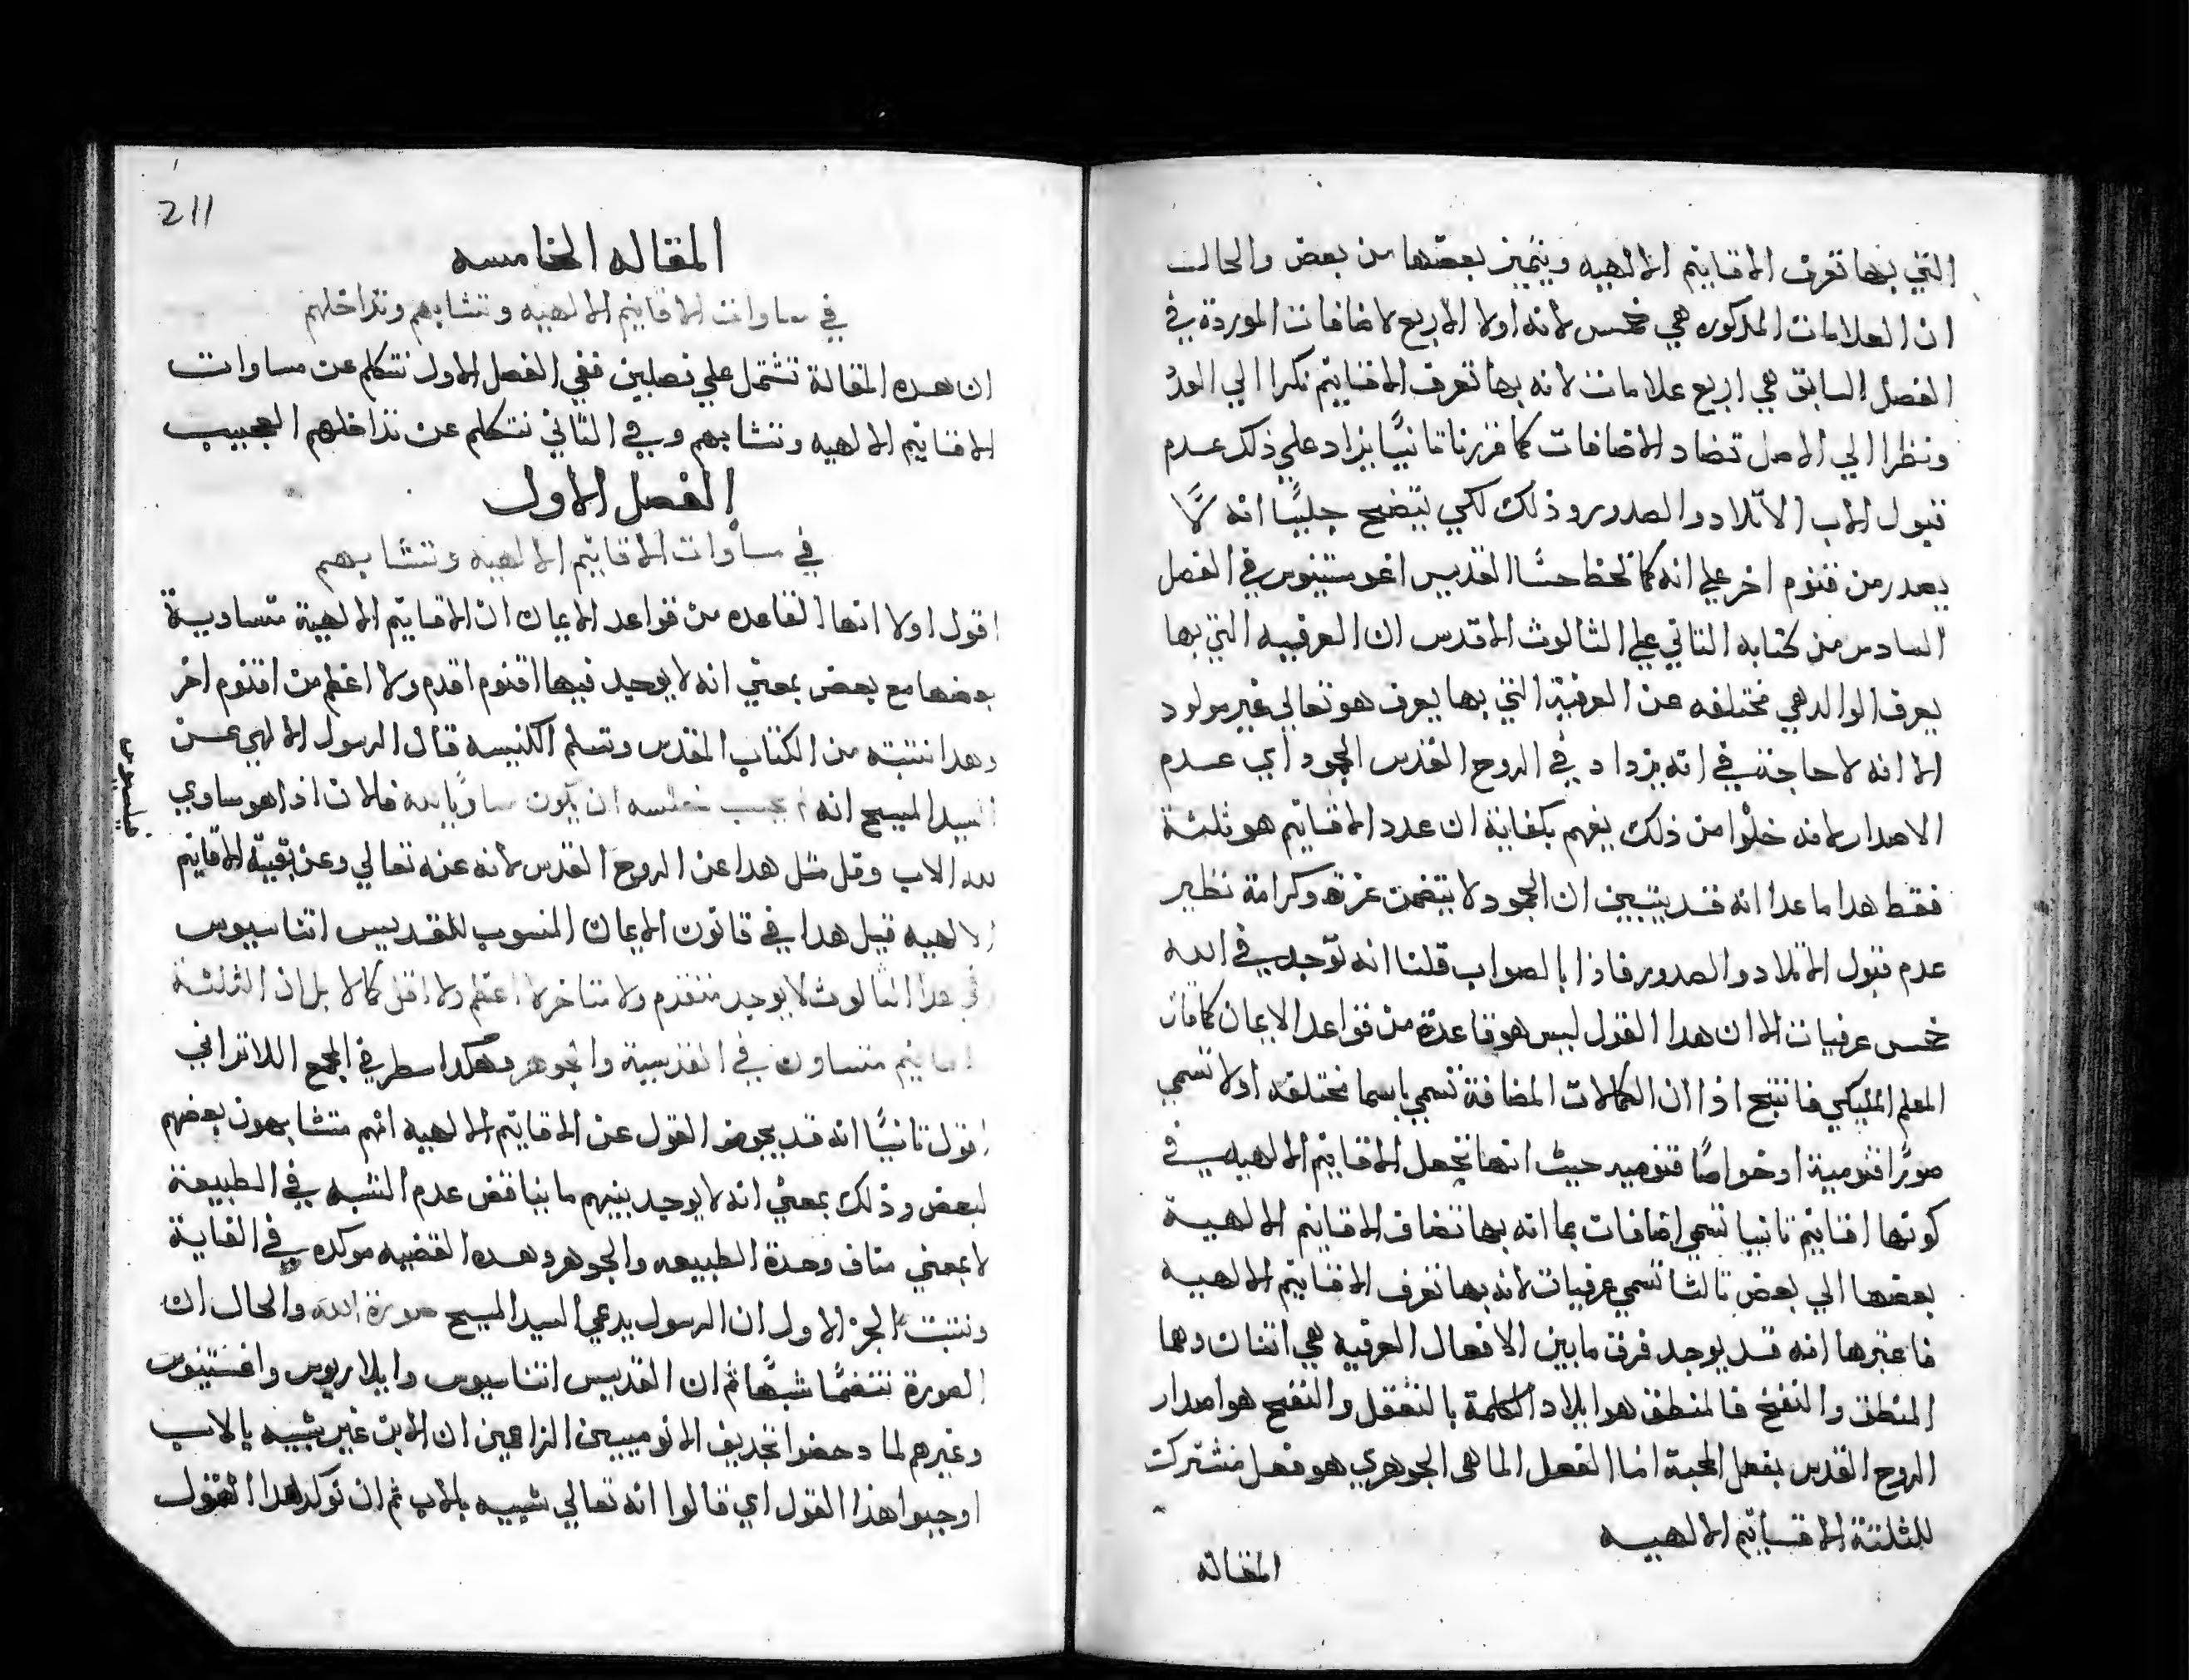 التي بها تعرف الاقانيم الالهيه ويتميز بعضها من بعض والحالت
ان العلامات المدكوره هي خمس لانه اولا الاربع لاضافات الموردة في
الفصل السابق هي اربع علامات لانه بها تعرف الاقانيم نكرا الي العدد
ونظرا الي الاصل تضاد الاضافات كما قررنا تانيًا يزاد علي ذلك عدم
قبول الاب الاتلاد والصدور وذلك لكي يتضح جليًا انه لمَّا
يصدر من قنوم اخر علي انه كما لحظ حسنًا القديس اغوستينوس في الفصل
السادس من كتابه التاني علي التالوث الاقدس ان العرفيه التي بها
يعرف الوالد هي مختلفه عن العرفية التي بها يعرف هو تعالي غير مولود
الا انه لا حاجة في انه يزداد في الروح القدس الجمود اي عدم
الاصدار لانه خلوًا من ذلك يفهم بكفاية ان عدد الاقانيم هو ثلثة
فقط هدا ما عدا انه قد يتبين ان الجمود لا يتضمن عزة وكرامة نظير
عدم قبول الاتلاد والصدور فاذا بالصواب قلنا انه توجد في الله
خمس عرفيات الا ان هدا القول ليس هو قاعدة من قواعد الايمان كما قال
المعلم الملايكي فانتتج اذا ان الكمالات المضافة تسمي باسما مختلفه اولا تسمي
صورًا قنومية او خواصًا قنوميه حيث انها تجعل الاقانيم الالهيه في
كونها اقانيم تانيا تسمي اضافات بما انه بها تضاف الاقانيم الالهية
بعضها الي بعض تالثا تسمي عرفيات لانه بها تعرف الاقانيم الالهيه
فاعتبرها انه قد يوجد فرق مابين الافعال العرفيه هي اتنان وهما
المنطق والنفخ فالمنطق هو ايلاد الكلمة بالتعقل والنفخ هو اصدار
الروح القدس بفعل المحبة اما الفعل الماهي الجوهري هو فعل مشترك
للثلثة الاقانيم الالهيه
المقالة
211
المقاله الخامسه
في ساوات الاقانيم الالهيه وتشابهم وتداخلهم
ان هده المقالة تشتمل علي فصلين ففي الفصل الاول نتكلم عن مساوات
الاقانيم الالهيه وتشابهم وفي التاني نتكلم عن تداخلهم العجيب
الفصل الاول
في مساوات الاقانيم الالهيه وتشابهم
اقول اولا انها القاعده من قواعد الايمان ان الاقانيم الالهية متساوية
بعضها مع بعض بمعني انه لا يوجد فيها اقنوم اقدم ولا اعظم من اقنوم اخر
وهدا نتبته من الكتاب المقدس وتسلم الكنيسه قال الرسول الالهي عن
السيد المسيح انه لم يحسب خلسه ان يكون مساويًا لله فلان اذا هو ساوي
لله الاب وقل متل هدا عن الروح القدس لانه عنه تعالي وعن بقية الاقانيم
فيلبسيوس
الالهيه قيل هدا في قانون الايمان المنسوب للقديس اتناسيوس
في هدا التالوث لا يوجد متقدم ولا متاخر لا اعظم ولا اقل كمالا بل ان الثلثة
اقانيم متساون في القدسية والجوهر وهكدا سطر في المجمع اللاتراني
اقول تانيًا انه قد يجوز القول عن الاقانيم الالهيه انهم متشابهون بعضهم
لبعض وذلك بمعني انه لا يوجد بينهم ما يناقض عدم الشبه في الطبيعة
لا بمعني مناف وحدة الطبيعه والجوهر وهده القضيه موكده في الغاية
ونتبت الجز الاول ان الرسول يدعي السيد المسيح صورة الله والحال ان
الصورة تتضمَّا شبهًا ثم ان القديس اتناسيوس وايلاريوس واغستينوس
وغيرهم لما دحضوا تجديف الانوميين الزاعمين ان الابن غير شبيه بالاب
اوجبوا هذا القول اي قالوا انه تعالي شبيه بالاب ثم ان توكد هدا القول